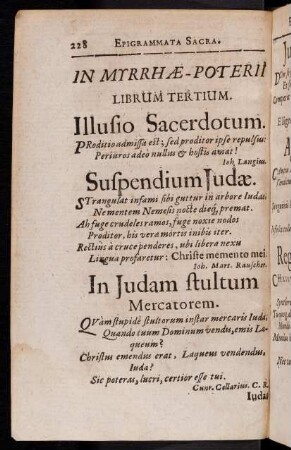 228 EPIGRAMMATA SACRA.
IN MYRRHÆ-POTERII
LIBRUM TERTIUM.
Illusio Sacerdotum.
PRoditio admissa est; sed proditor ipse repulsus:
Periuros adeo nullus & hostis amat!
Ioh. Langius.
Suspendium Judæ.
STrangulat infami sibi guttur in arbore Iudas:
Nementem Nemesis nocte dieq; premat.
Ah fuge crudeles ramos, fuge noxie nodos
Proditor, his vera mortis inibis iter.
Rectius à cruce penderes, ubi libera nexu
Lingua profaretur: Christe memento mei.
Ioh. Mart. Rauscher.
In Judam stultum
Mercatorem.
QVàm stupidè stultorum instar mercaris Iuda:
Quando tuum Dominum vendis, emis Laqueum?
Christus emendus erat, Laqueus vendendus,
Iuda?
Sic poteras, lucri, certior esse tui.
Cunr. Cellarius. C. R.
Iudas